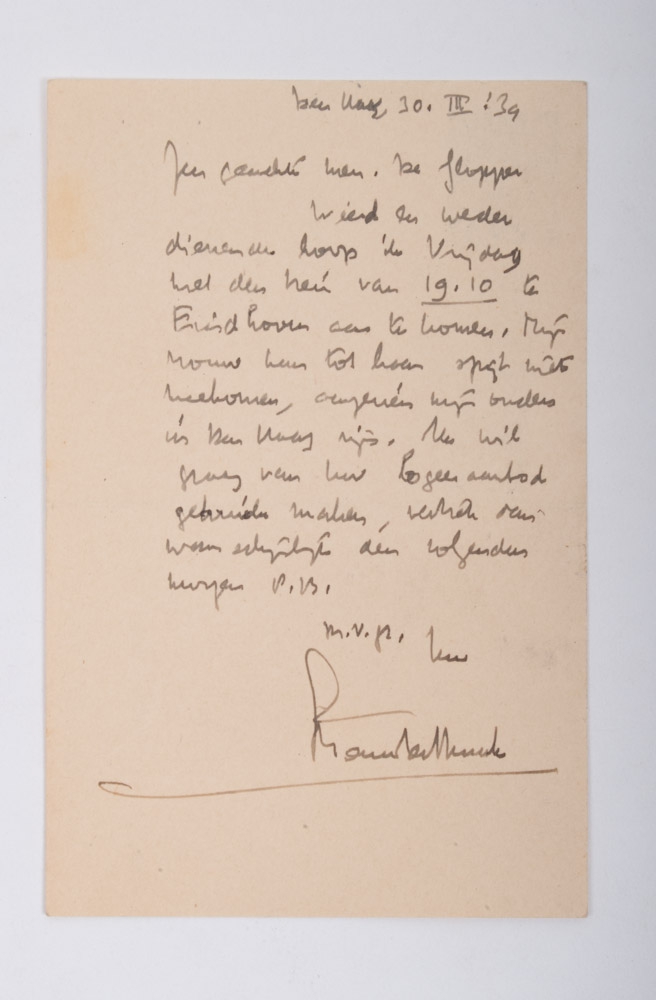 Den Haag 30. III. '39
Zeer geachte men. De Gropper
Weled en weder
dienende hoop ik Vrijdag
met den trein van 19.10 te
Eindhoven aan te komen. Mijn
vrouw kan tot haar spijt niet
meekomen, aangezien mijn ouders
in Den Haag zijn. Ik wil
graag van Uw logeeraanbod
gebruik maken, vertrek dan
waarschijnlijk den volgenden
morgen
m.v.gr. Uw